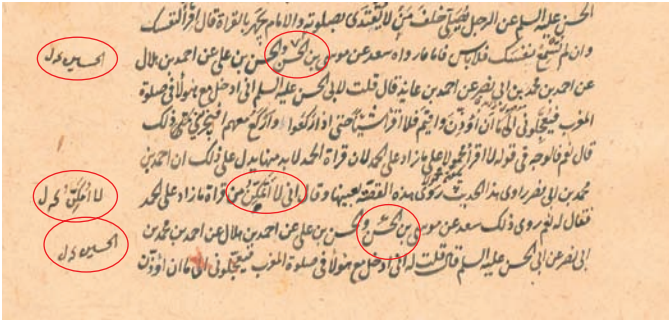 الحسن عليه السلم عن الرجل يصلي خلف من لا يقتدى بصلوته والامام يجهر بالقراة قال اقرأ لنفسك
وان لم تسمع نفسك فلا باس فاما ما رواه سعد عن موسى بن الحسن والحسن بن علي عن احمد بن هلال
الحسين كذا
عن احمد بن محمد بن ابي نصر عن احمد بن عايذ قال قلت لابي الحسن عليه السلم اني ادخل مع هولا في صلوة
المغرب فيعجلوني الى ما ان اؤذن واقيم فلا اقرأ شيئا حتى اذا ركعوا واركع معهم افيجزيني ذلك
قال نعم فالوجه في قوله لا اقرأ محمول على ما زاد على الحمد لان قراة الحمد لا بد منها يدل على ذلك ان احمد بن
محمد بن ابي نصر راوى هذا الحديث روى هذه القصة بعينها وقال اني لا اتمكن من قراة ما زاد على الحمد
فقال له نعم روى ذلك سعد عن موسى بن الحسن والحسن بن علي عن احمد بن هلال عن احمد بن محمد بن
الحسين
ابي نصر عن ابي الحسن عليه السلم قال قلت له اني ادخل مع هولا في صلوة المغرب فيعجلوني الى ما ان اؤذن